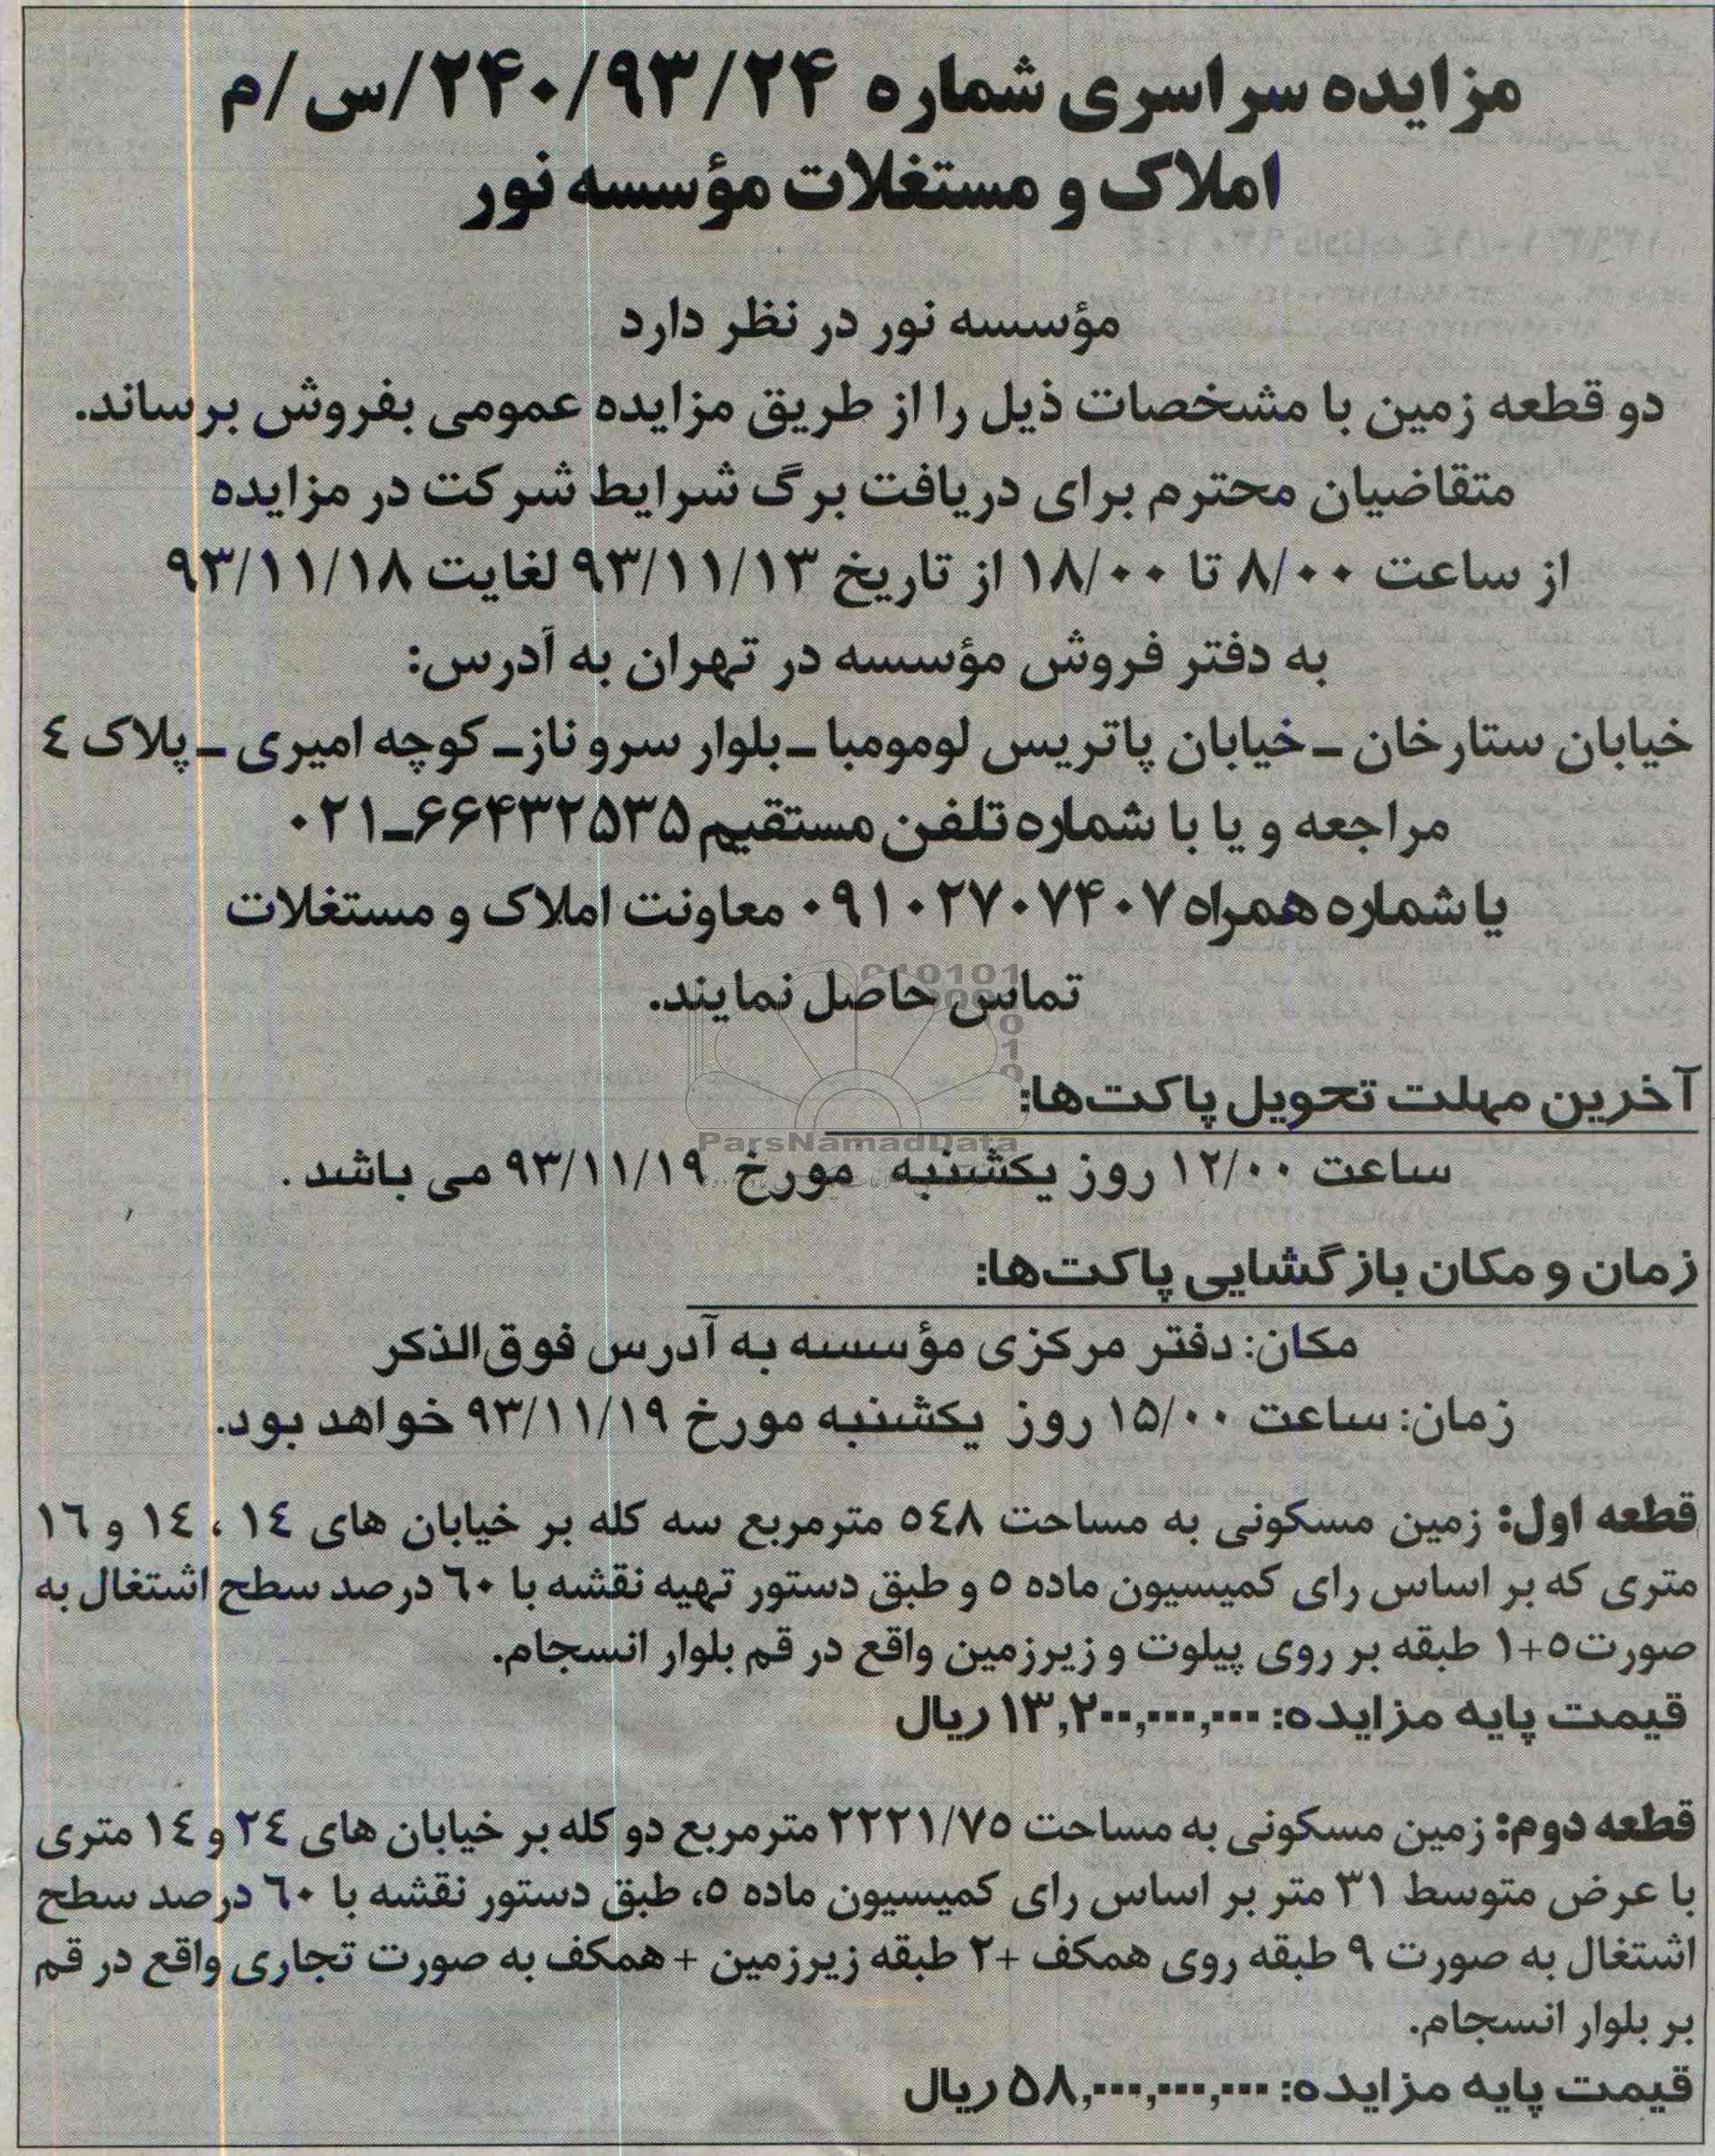 مزایده سراسری شماره ۲۴۰/۹۳/۲۴/س/م
املاک و مستغلات مؤسسه نور
مؤسسه نور در نظر دارد
دو قطعه زمین با مشخصات ذیل را از طریق مزایده عمومی بفروش برساند.
متقاضیان محترم برای دریافت برگ شرایط شرکت در مزایده
از ساعت ۸/۰۰ تا ۱۸/۰۰ از تاریخ ۹۳/۱۱/۱۳ لغایت ۹۳/۱۱/۱۸
به دفتر فروش مؤسسه در تهران به آدرس:
خیابان ستارخان ـ خیابان پاتریس لومومبا ـ بلوار سرو ناز ـ کوچه امیری ـ پلاک ٤
مراجعه و یا با شماره تلفن مستقیم ۶۶۴۳۲۵۳۵ـ۰۲۱
یا شماره همراه ۰۹۱۰۲۷۰۷۴۰۷ معاونت املاک و مستغلات
تماس حاصل نمایند.
ParsNamadData
آخرین مهلت تحویل پاکت‌ها:
ساعت ۱۲/۰۰ روز یکشنبه مورخ ۹۳/۱۱/۱۹ می باشد .
زمان و مکان بازگشایی پاکت‌ها:
مکان: دفتر مرکزی مؤسسه به آدرس فوق‌الذکر
زمان: ساعت ۱۵/۰۰ روز یکشنبه مورخ ۹۳/۱۱/۱۹ خواهد بود.
قطعه اول: زمین مسکونی به مساحت ٥٤٨ مترمربع سه کله بر خیابان های ١٤ ، ١٤ و ١٦
متری که بر اساس رای کمیسیون ماده ٥ و طبق دستور تهیه نقشه با ٦٠ درصد سطح اشتغال به
صورت ٥+١ طبقه بر روی پیلوت و زیرزمین واقع در قم بلوار انسجام.
قیمت پایه مزایده: ۱۳,۲۰۰,۰۰۰,۰۰۰ ریال
قطعه دوم: زمین مسکونی به مساحت ٢٢٢١/٧٥ مترمربع دو کله بر خیابان های ٢٤ و ١٤ متری
با عرض متوسط ٣١ متر بر اساس رای کمیسیون ماده ٥، طبق دستور نقشه با ٦٠ درصد سطح
اشتغال به صورت ٩ طبقه روی همکف +٢ طبقه زیرزمین + همکف به صورت تجاری واقع در قم
بر بلوار انسجام.
قیمت پایه مزایده: ۵۸,۰۰۰,۰۰۰,۰۰۰ ریال